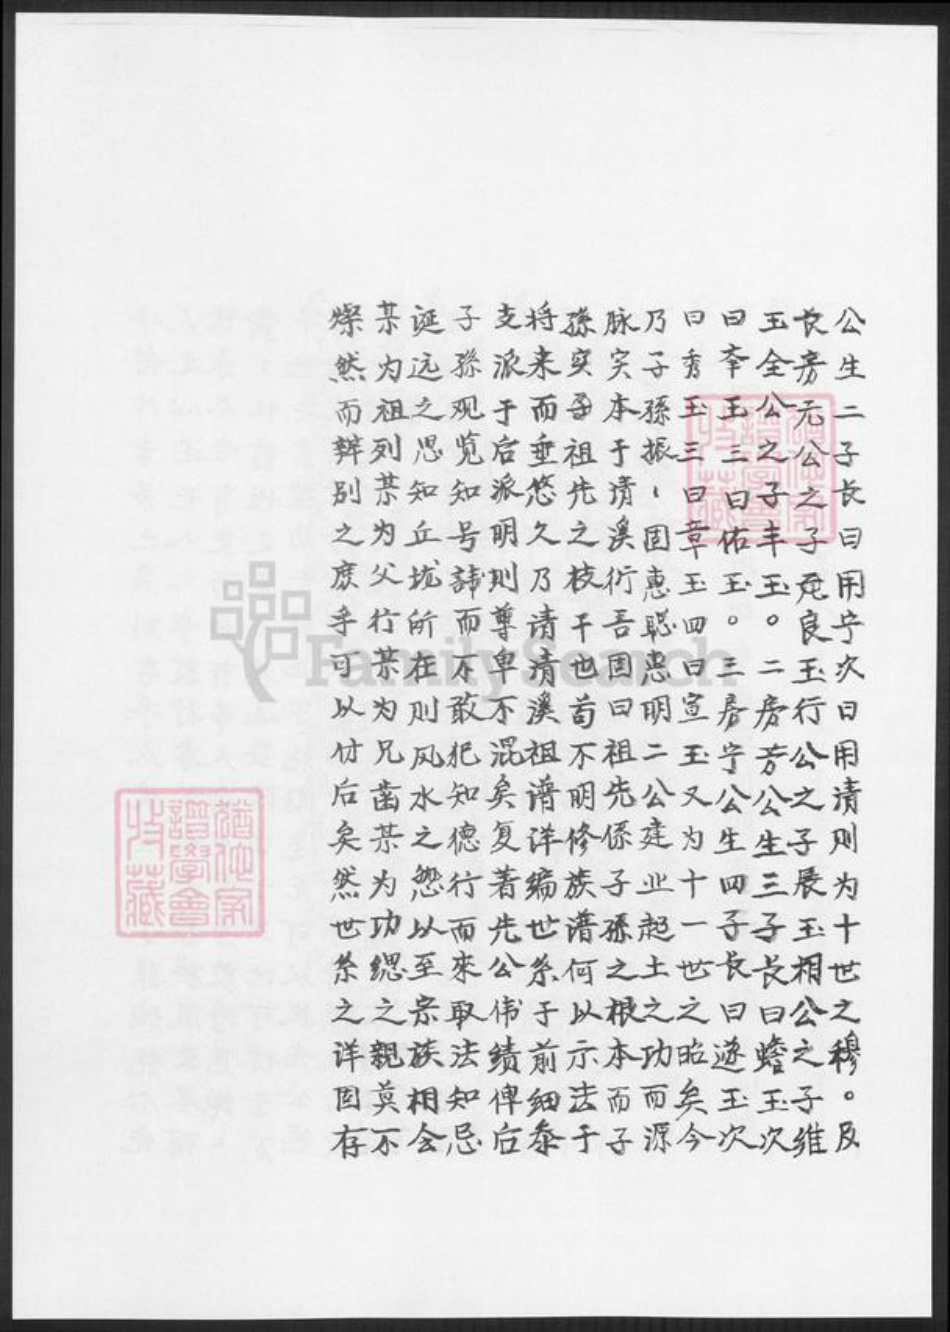 公生二子长曰用宁次曰用清则为十世之穆。及
长房元公之子琓良玉行公之子展玉相公之子维
玉全公之子丰玉。二房芳公生三子长曰蟾玉次
曰李玉三曰佑玉。三房宁公生四子长曰遂玉次
曰秀玉三曰章玉四曰宣玉又为十一世之昭矣今
乃子孫振、固惠聪惠明二公建业起土之功而源
脉实本于清溪衍吾固曰祖先係子孫之根本而子
孫实子祖先之枝干也苟不明修族谱何以示法于
将来而垂悠久乃请清溪祖谱详编世系于前细叅
支派于后派明则尊卑不混矣复著先公伟绩俾后
子孫观览知号諱而不敢犯知德行而來取法知忌
诞远之思知丘垅所在则风水之愬以至宗族相会
某为祖列某为父行某为兄齿某为功缌之親莫不
燦然而辨别之庶乎可以付后矣然世系之详固存
FamilySearch